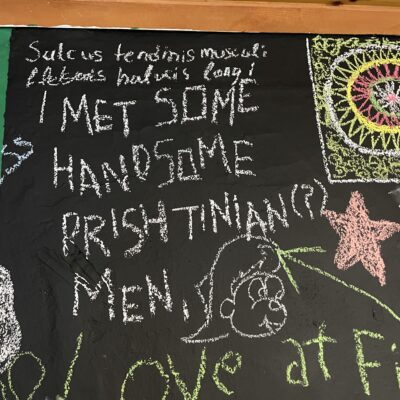 Sulcus tendinis musculi
flexoris halucis longi
I MET SOME
HANDSOME
PRISHTINIAN(?)
MEN,
Love at Fi